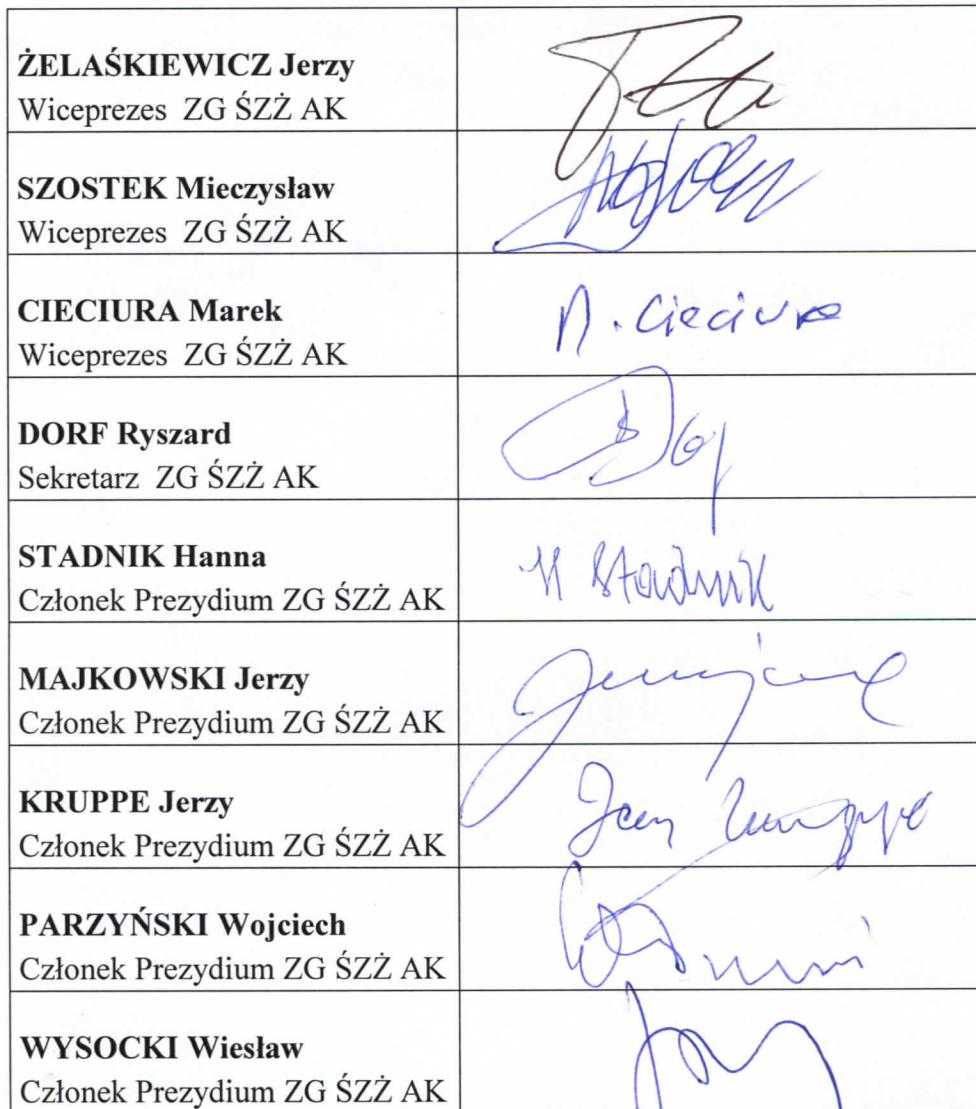 ŻELAŚKIEWICZ Jerzy
Wiceprezes ZG ŚZŻ AK
SZOSTEK Mieczysław
Wiceprezes ZG ŚZŻ AK
CIECIURA Marek
Wiceprezes ZG ŚZŻ AK
M. Cieciura
DORF Ryszard
Sekretarz ZG ŚZŻ AK
STADNIK Hanna
Członek Prezydium ZG ŚZŻ AK
H Stadnik
MAJKOWSKI Jerzy
Członek Prezydium ZG ŚZŻ AK
KRUPPE Jerzy
Członek Prezydium ZG ŚZŻ AK
PARZYŃSKI Wojciech
Członek Prezydium ZG ŚZŻ AK
WYSOCKI Wiesław
Członek Prezydium ZG ŚZŻ AK